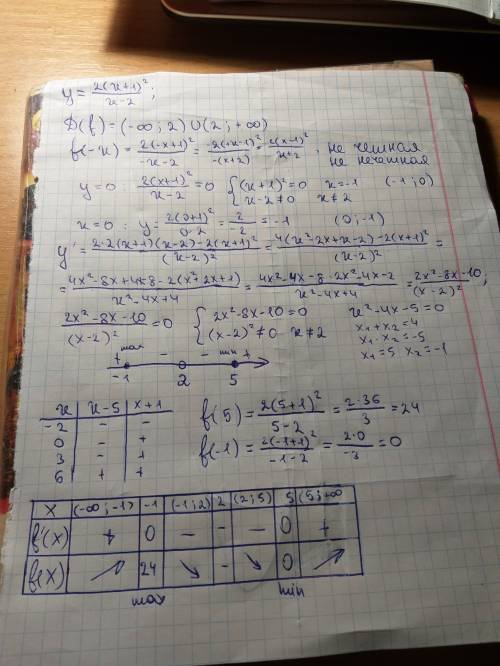 y = 2(x+1)² / x-2 ;
D(f) = (-∞; 2) ∪ (2; +∞)
f(-x) = 2(-x+1)² / -x-2 = -2(-x-1)² / -(x+2) = 2(x-1)² / x+2 . не чётная
не нечетная
y=0 2(x+1)² / x-2 = 0 { (x+1)²=0 x=-1 (-1;0)
x-2≠0 x≠2
x=0 : y = 2(0+1)² / 0-2 = 2 / -2 = -1 (0;-1)
y' = 2·2(x+1)(x-2)-2(x+1)² / (x-2)² = 4(x²-2x+x-2)-2(x+1)² / (x-2)² =
= 4x²-8x+4x-8-2(x²+2x+1) / x²-4x+4 = 4x²-4x-8-2x²-4x-2 / x²-4x+4 = 2x²-8x-10 / (x-2)² ;
2x²-8x-10 / (x-2)² = 0 { 2x²-8x-10=0 x²-4x-5=0
(x-2)²≠0 x≠2 x₁+x₂=4
x₁·x₂=-5
x₁=5 x₂=-1
+ max - - min +
-1 2 5
x x-5 x+1
-2 - -
0 - +
3 - +
6 + +
f(5) = 2(5+1)² / 5-2 = 2·36 / 3 = 24
f(-1) = 2(-1+1)² / -1-2 = 2·0 / -3 = 0
x (-∞;-1) -1 (-1;2) 2 (2;5) 5 (5;+∞
f'(x) + 0 - - - 0 +
f(x) ↗ 24 ↘ - ↘ 0 ↗
max min